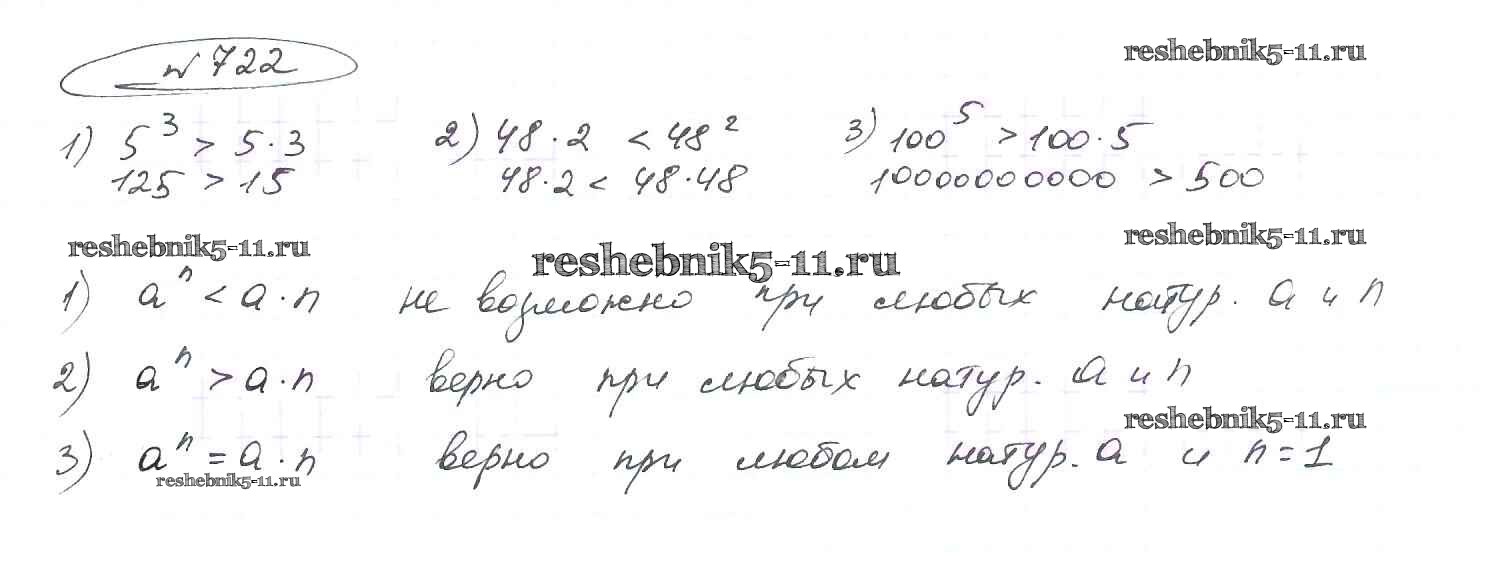 №722 reshebnik5-11.ru
1) 5³ > 5·3 2) 48·2 < 48² 3) 100⁵ > 100·5
125 > 15 48·2 < 48·48 10000000000 > 500
reshebnik5-11.ru reshebnik5-11.ru reshebnik5-11.ru
1) aⁿ < a·n не возможно при любых натур. a и n
2) aⁿ > a·n верно при любых натур. a и n
reshebnik5-11.ru
3) aⁿ = a·n верно при любом натур. a и n=1
reshebnik5-11.ru